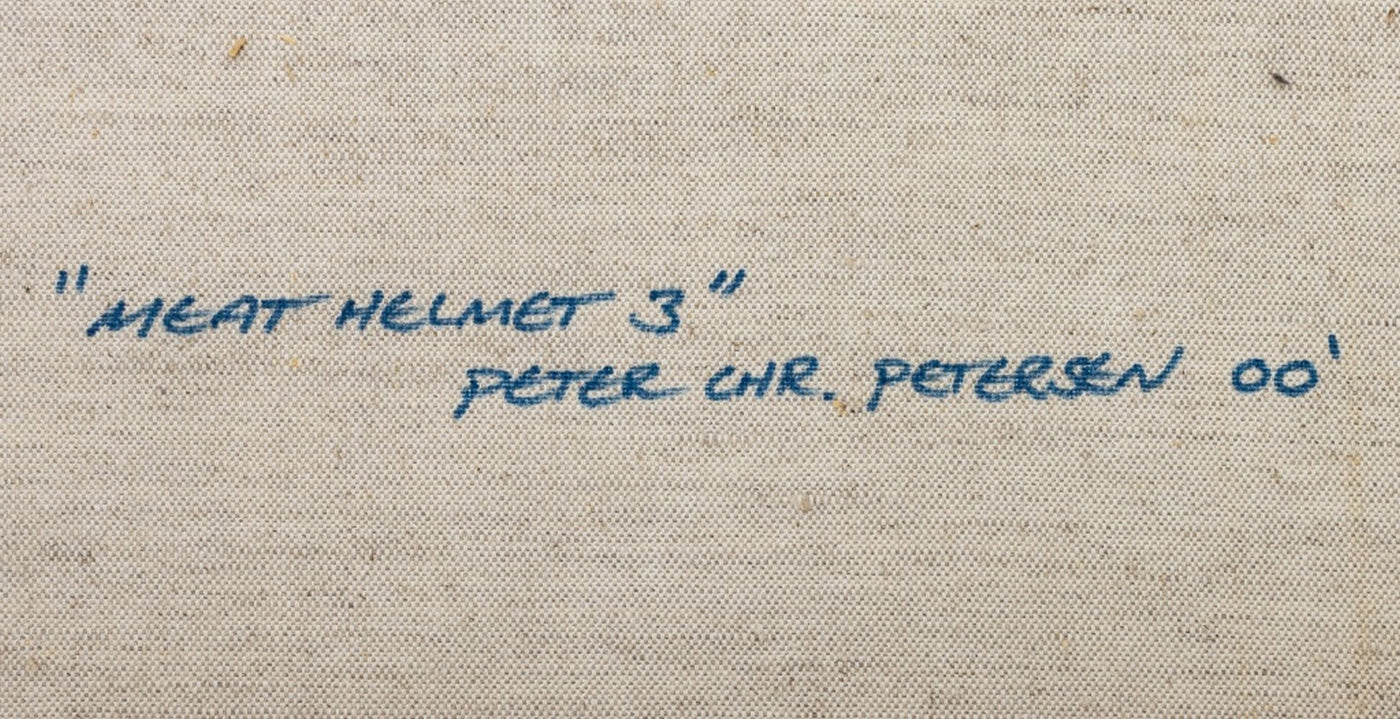 "MEAT HELMET 3"
PETER CHR. PETERSEN 00'